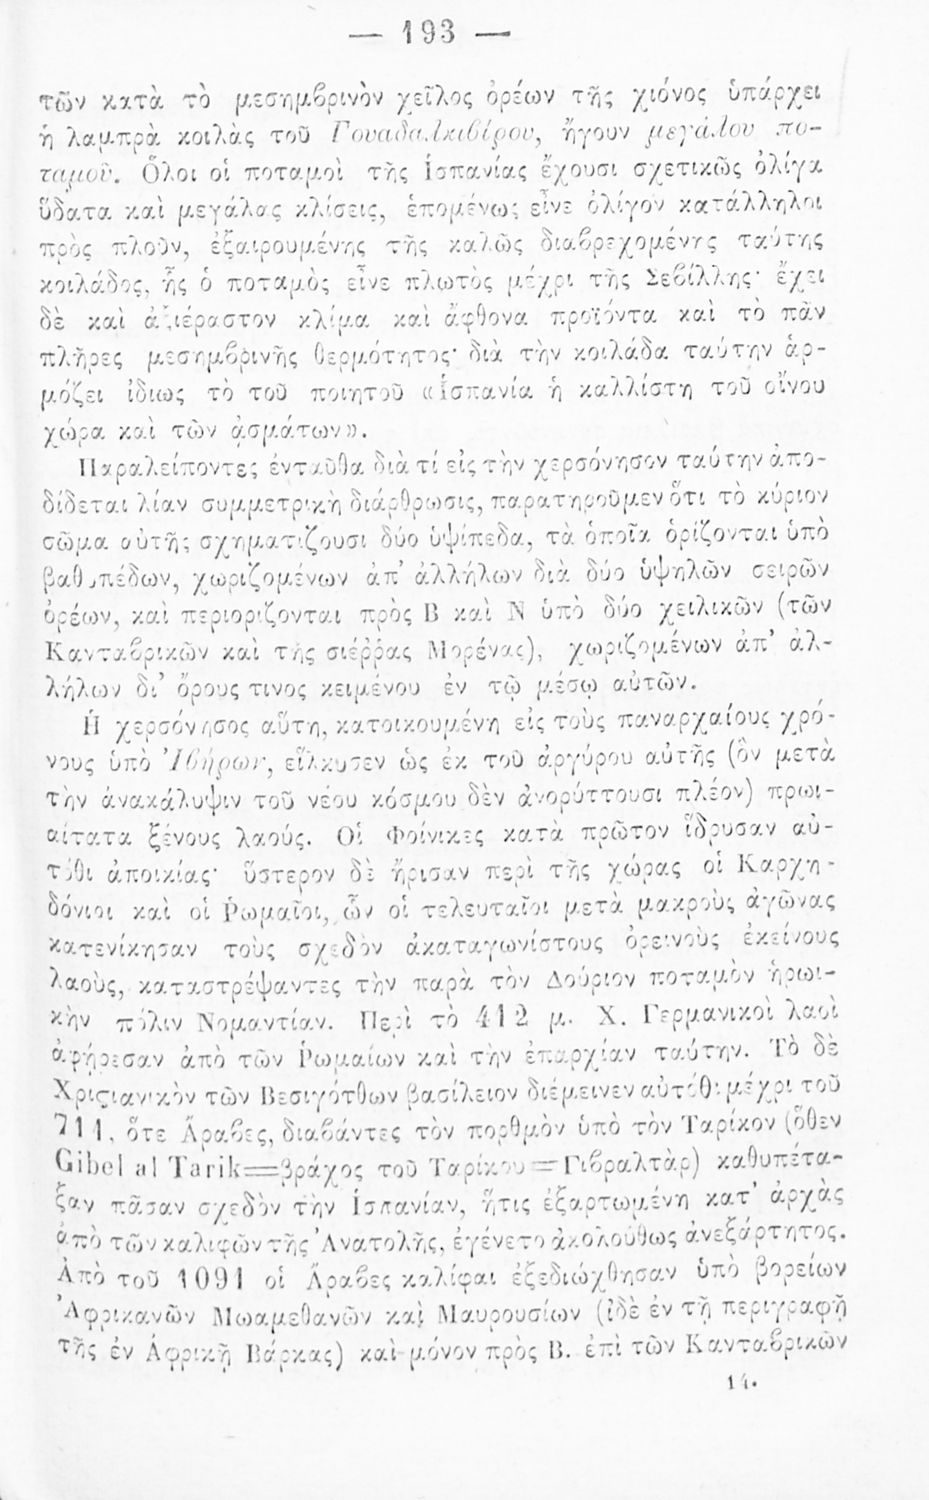 — 193 —
τῶν κατὰ τὸ μεσημβρινὸν χεῖλος ὀρέων τῆς χιόνος ὑπάρχει
ἡ λαμπρὰ κοιλὰς τοῦ Γουαδαλκιβίρου, ἤγουν μεγάλου πο-
ταμοῦ. Ὅλοι οἱ ποταμοὶ τῆς Ἱσπανίας ἔχουσι σχετικῶς ὀλίγα
ὕδατα καὶ μεγάλας κλίσεις, ἑπομένως εἶνε ὀλίγον κατάλληλοι
πρὸς πλοῦν, ἐξαιρουμένης τῆς καλῶς διαβρεχομένης ταύτης
κοιλάδος, ἧς ὁ ποταμὸς εἶνε πλωτὸς μέχρι τῆς Σεβίλλης· ἔχει
δὲ καὶ ἀξιέραστον κλίμα καὶ ἄφθονα προϊόντα καὶ τὸ πᾶν
πλῆρες μεσημβρινῆς θερμότητος· διὰ τὴν κοιλάδα ταύτην ἁρ-
μόζει ἰδίως τὸ τοῦ ποιητοῦ «Ἱσπανία ἡ καλλίστη τοῦ οἴνου
χώρα καὶ τῶν ᾀσμάτων».
Παραλείποντες ἐνταῦθα διὰ τί εἰς τὴν χερσόνησον ταύτην ἀπο-
δίδεται λίαν συμμετρικὴ διάρθρωσις, παρατηροῦμεν ὅτι τὸ κύριον
σῶμα αὐτῆς σχηματίζουσι δύο ὑψίπεδα, τὰ ὁποῖα ὁρίζονται ὑπὸ
βαθυπέδων, χωριζομένων ἀπ' ἀλλήλων διὰ δύο ὑψηλῶν σειρῶν
ὀρέων, καὶ περιορίζονται πρὸς Β καὶ Ν ὑπὸ δύο χειλικῶν (τῶν
Κανταβρικῶν καὶ τῆς σιέῤῥας Μορένας), χωριζομένων ἀπ' ἀλ-
λήλων δι' ὄρους τινος κειμένου ἐν τῷ μέσῳ αὐτῶν.
Ἡ χερσόνησος αὕτη, κατοικουμένη εἰς τοὺς παναρχαίους χρό-
νους ὑπὸ Ἰβήρων, εἵλκυσεν ὡς ἐκ τοῦ ἀργύρου αὐτῆς (ὃν μετὰ
τὴν ἀνακάλυψιν τοῦ νέου κόσμου δὲν ἀνορύττουσι πλέον) πρωι-
αίτατα ξένους λαούς. Οἱ Φοίνικες κατὰ πρῶτον ἵδρυσαν αὐ-
τόθι ἀποικίας· ὕστερον δὲ ἤρισαν περὶ τῆς χώρας οἱ Καρχη-
δόνιοι καὶ οἱ Ῥωμαῖοι, ὧν οἱ τελευταῖοι μετὰ μακροὺς ἀγῶνας
κατενίκησαν τοὺς σχεδὸν ἀκαταγωνίστους ὀρεινοὺς ἐκείνους
λαοὺς, καταστρέψαντες τὴν παρὰ τὸν Δούριον ποταμὸν ἡρωι-
κὴν πόλιν Νομαντίαν. Περὶ τὸ 412 μ. Χ. Γερμανικοὶ λαοὶ
ἀφῄρεσαν ἀπὸ τῶν Ῥωμαίων καὶ τὴν ἐπαρχίαν ταύτην. Τὸ δὲ
Χριϛιανικὸν τῶν Βεσιγότθων βασίλειον διέμεινεν αὐτόθι μέχρι τοῦ
711, ὅτε Ἄραβες, διαβάντες τὸν πορθμὸν ὑπὸ τὸν Ταρίκον (ὅθεν
Gibel al Tarik=βράχος τοῦ Ταρίκου=Γιβραλτὰρ) καθυπέτα-
ξαν πᾶσαν σχεδὸν τὴν Ἱσπανίαν, ἥτις ἐξαρτωμένη κατ' ἀρχὰς
ἀπὸ τῶν καλιφῶν τῆς Ἀνατολῆς, ἐγένετο ἀκολούθως ἀνεξάρτητος.
Ἀπὸ τοῦ 1091 οἱ Ἄραβες καλίφαι ἐξεδιώχθησαν ὑπὸ βορείων
Ἀφρικανῶν Μωαμεθανῶν καὶ Μαυρουσίων (ἰδὲ ἐν τῇ περιγραφῇ
τῆς ἐν Ἀφρικῇ Βάρκας) καὶ μόνον πρὸς Β. ἐπὶ τῶν Κανταβρικῶν
14.